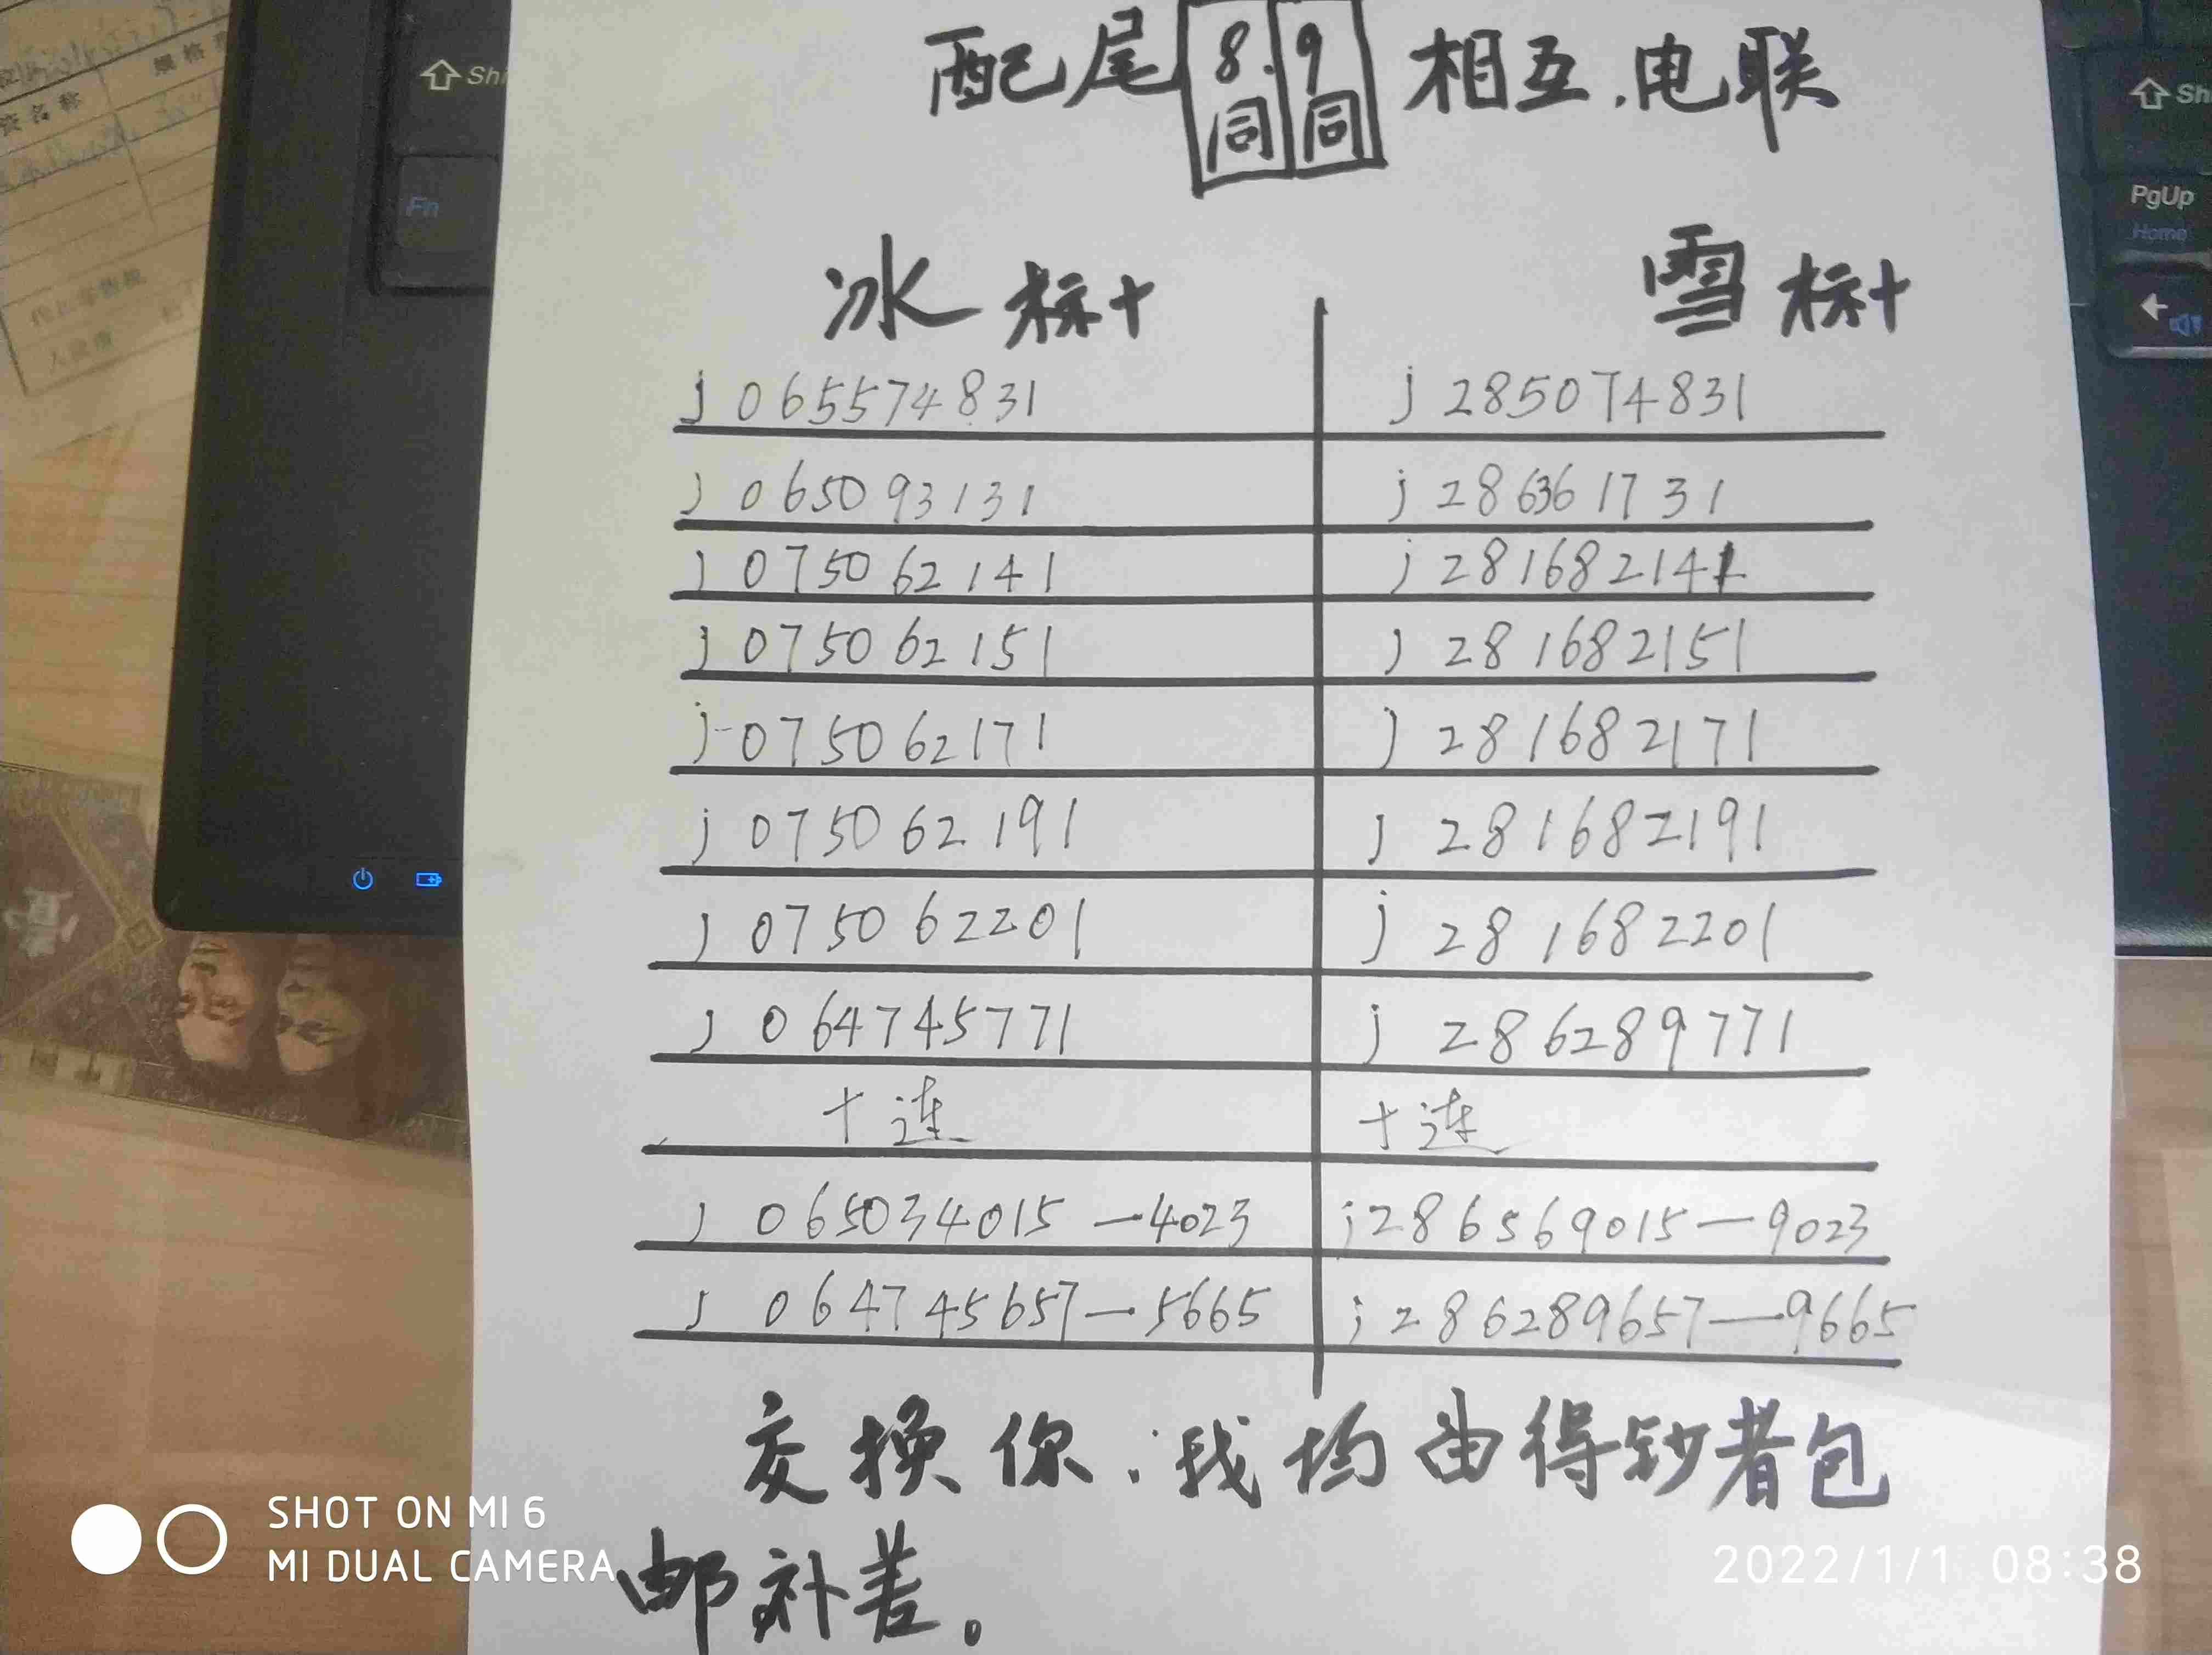 配尾 8.9 相互.电联
同 同
冰标十 雪标十
j 065574831 j 285074831
j 065093131 j 286361731
j 075062141 j 281682141
j 075062151 j 281682151
j-075062171 j 281682171
j 075062191 j 281682191
j 075062201 j 281682201
j 064745771 j 286289771
十连 十连
j 065034015—4023 j286569015—9023
j 064745657—5665 j286289657—9665
交换你:我均由得钞者包
邮补差。
Shi
Fn
Sh
PgUp
Home
资名称
规格
SHOT ON MI 6
MI DUAL CAMERA
2022/1/1 08:38